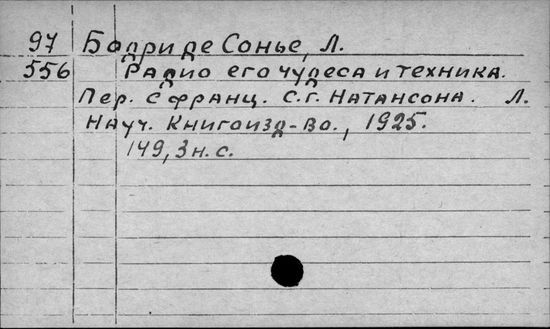 97 Бодри де Сонье, Л.
556 Радио его чудеса и техника.
Пер. с франц. С.Г. Натансона. Л.
Науч. Книгоизд-во., 1925.
149, 3 н. с.